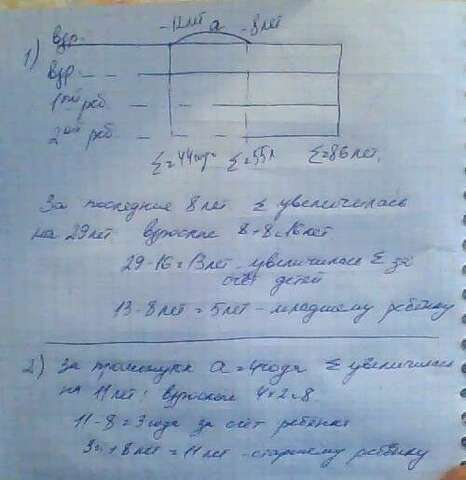 -12 лет а -8 лет
1) взр.
взр.
1ый реб
2ой реб
Σ=44года Σ=55л Σ=86лет.
За последние 8 лет Σ увеличилась
на 29лет взрослые 8+8=16лет
29-16=13лет увеличилась Σ за
счёт детей
13-8лет=5лет-младшему ребёнку
2) За промежуток а=4года Σ увеличилась
на 11лет: взрослые 4×2=8
11-8=3года за счёт ребёнка
3г+8лет=11лет-старшему ребёнку